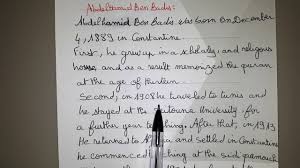 Abdelhamid Ben Badis:
Abdelhamid Ben Badis was born on December
4, 1889 in Constantine.
First, he grew up in a scholarly and religious
house and as a result memorized the quran
at the age of thirteen
Second, in 1908 he traveled to tunis and
he stayed at the Zaitouna University for
a further year teaching. After that, in 1913
He returned to and settled in Constantine
he commenced teaching at the sidi